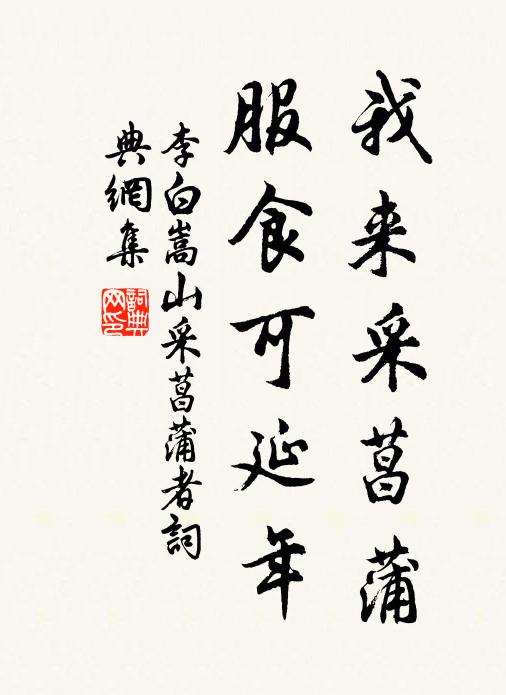 我来采菖蒲
服食可延年
李白嵩山采菖蒲者詞
典網集
詞典網印